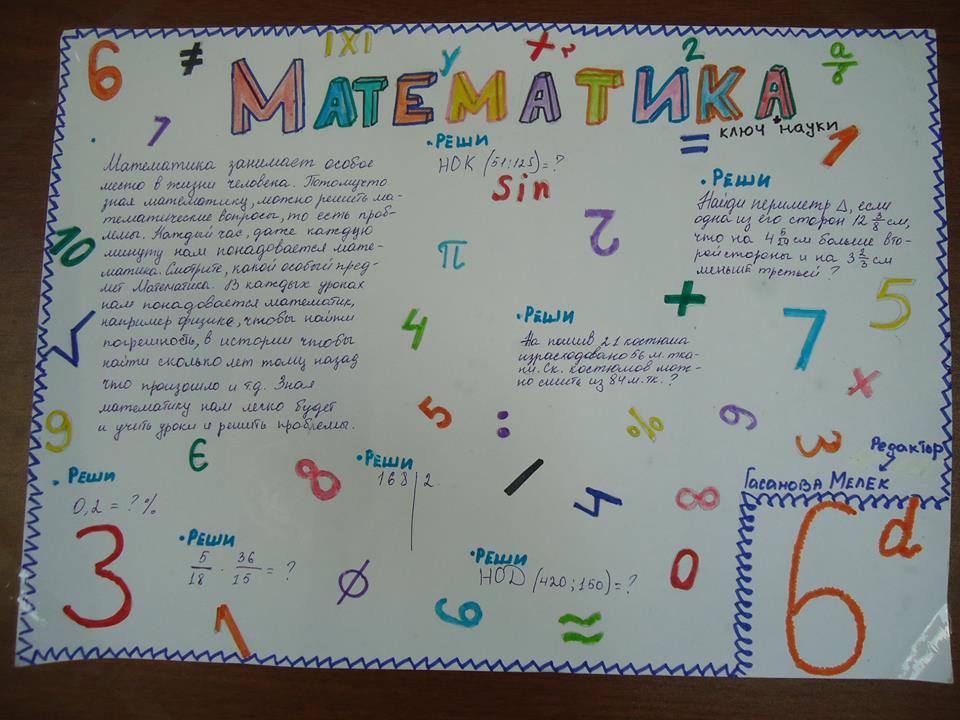 6 ≠ |X| y + 2 a/b
МАТЕМАТИКА
= КЛЮЧ НАУКИ
1
7
Математика занимает особое
место в жизни человека. Потомучто
зная математику, можно решить ма-
тематические вопросы, то есть проб-
лемы. Каждый час, даже каждую
минуту нам понадовается мате-
матика. Смотрите, какой особый пред-
мет Математика. В каждых уроках
нам понадовается математик,
например физике, чтобы найти
погрешность, в истории чтобы
найти сколько лет тому назад
что произошло и т.д. Зная
математику нам легко будет
и учить уроки и решить проблемы.
10
√
9
• РЕШИ
НОК (51;125)=?
Sin
π
2
4
• РЕШИ
Найди периметр Δ, если
одна из его сторон 12 3/8 см,
что на 4 см больше вто-
рой стороны и на 3 2/3 см
меньше третьей?
+
7
5
x
• РЕШИ
На пошив 21 костюма
израсходовано 56 м. тка-
ни. Ск. костюмов мож-
но сшить из 84 м. тк.?
5
:
%
9
3
Є
8
• РЕШИ
168 | 2
/
4
8
Редактор
ГАСАНОВА МЕЛЕК
• РЕШИ
0,2 = ? %
3
• РЕШИ
5/18 · 36/15 = ?
1
Ø
• РЕШИ
НОD (420;150)=?
6
≈
0
6 d